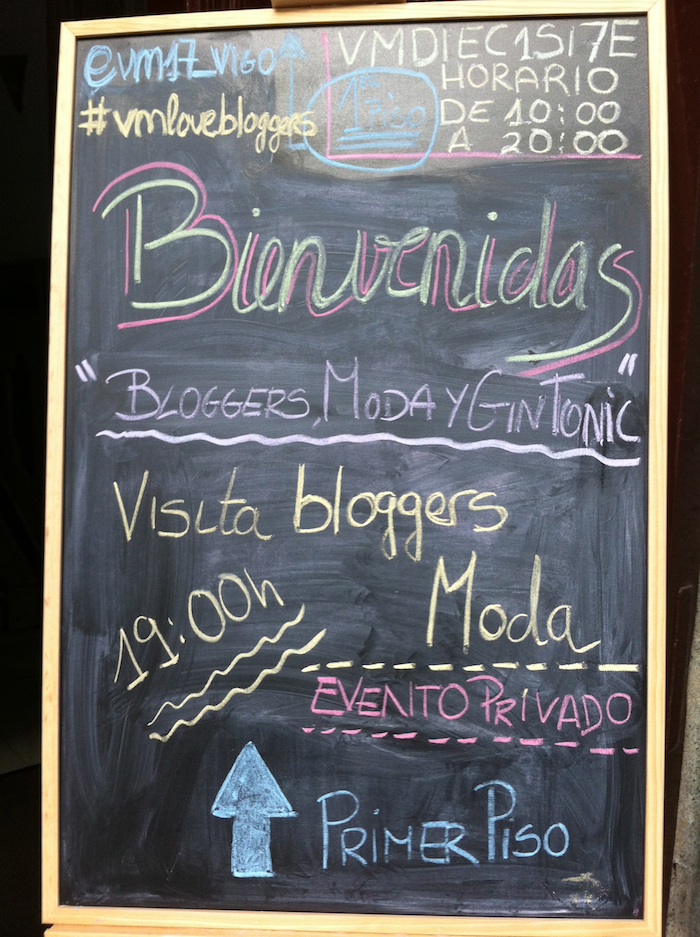 @vm17_vigo
#vmlovebloggers
1er Piso
VMDIEC1SI7E
HORARIO
DE 10:00
A 20:00
Bienvenidas
"BLOGGERS, MODA Y GINTONIC"
Visita bloggers
19:00h
Moda
EVENTO PRIVADO
PRIMER PISO